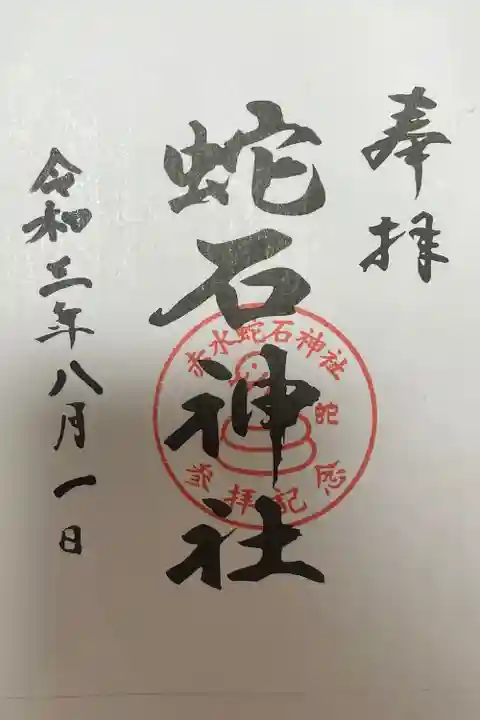 奉拝
蛇石神社
赤水蛇石神社
蛇
参拝記念
令和三年八月一日